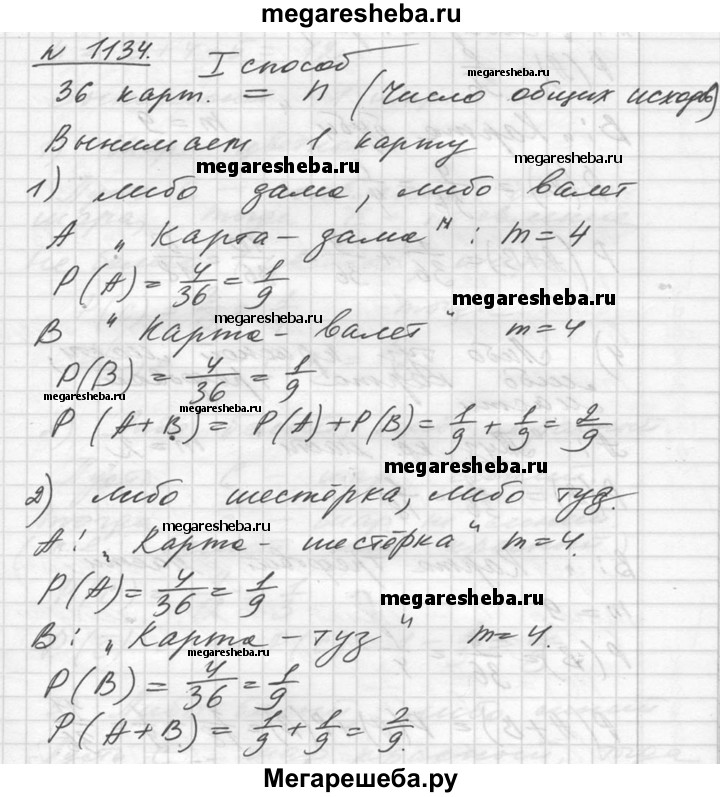 megaresheba.ru
N 1134.
I способ
megaresheba.ru
36 карт. = n (число общих исходов)
Вынимает 1 карту
megaresheba.ru
megaresheba.ru
1) либо дама, либо валет
A „Карта - дама": m=4
P(A) = 4/36 = 1/9
megaresheba.ru
B „Карта - валет" m=4
P(B) = 4/36 = 1/9
megaresheba.ru
megaresheba.ru
P(A+B) = P(A)+P(B) = 1/9 + 1/9 = 2/9
megaresheba.ru
2) либо шестёрка, либо туз.
megaresheba.ru
A: „Карта - шестёрка" m=4.
P(A) = 4/36 = 1/9
megaresheba.ru
B: „Карта - туз" m=4.
megaresheba.ru
P(B) = 4/36 = 1/9
P(A+B) = 1/9 + 1/9 = 2/9.
Мегарешеба.ру